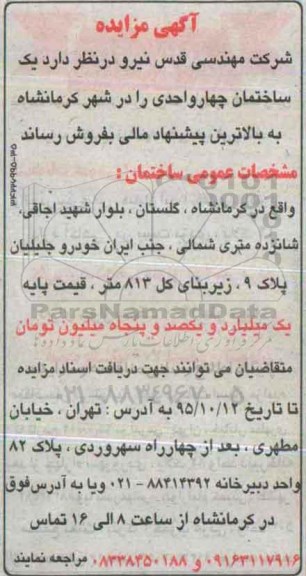 آگهی مزایده
شرکت مهندسی قدس نیرو درنظر دارد یک
ساختمان چهارواحدی را در شهر کرمانشاه
به بالاترین پیشنهاد مالی بفروش رساند
مشخصات عمومی ساختمان :
واقع در کرمانشاه ، گلستان ، بلوار شهید اجاقی،
شانزده متری شمالی ، جنب ایران خودرو جلیلیان
پلاک ۹ ، زیربنای کل ۸۱۳ متر ، قیمت پایه
یک میلیارد و یکصد و پنجاه میلیون تومان
متقاضیان می توانند جهت دریافت اسناد مزایده
تا تاریخ ۹۵/۱۰/۱۲ به آدرس : تهران ، خیابان
مطهری ، بعد از چهارراه سهروردی ، پلاک ۸۲
واحد دبیرخانه ۸۸۴۱۴۳۹۲ - ۰۲۱ ویا به آدرس فوق
در کرمانشاه از ساعت ۸ الی ۱۶ تماس
۰۹۱۶۳۱۱۷۹۱۶ و ۰۸۳۳۸۴۵۰۱۸۸ مراجعه نمایند
ParsNamadData